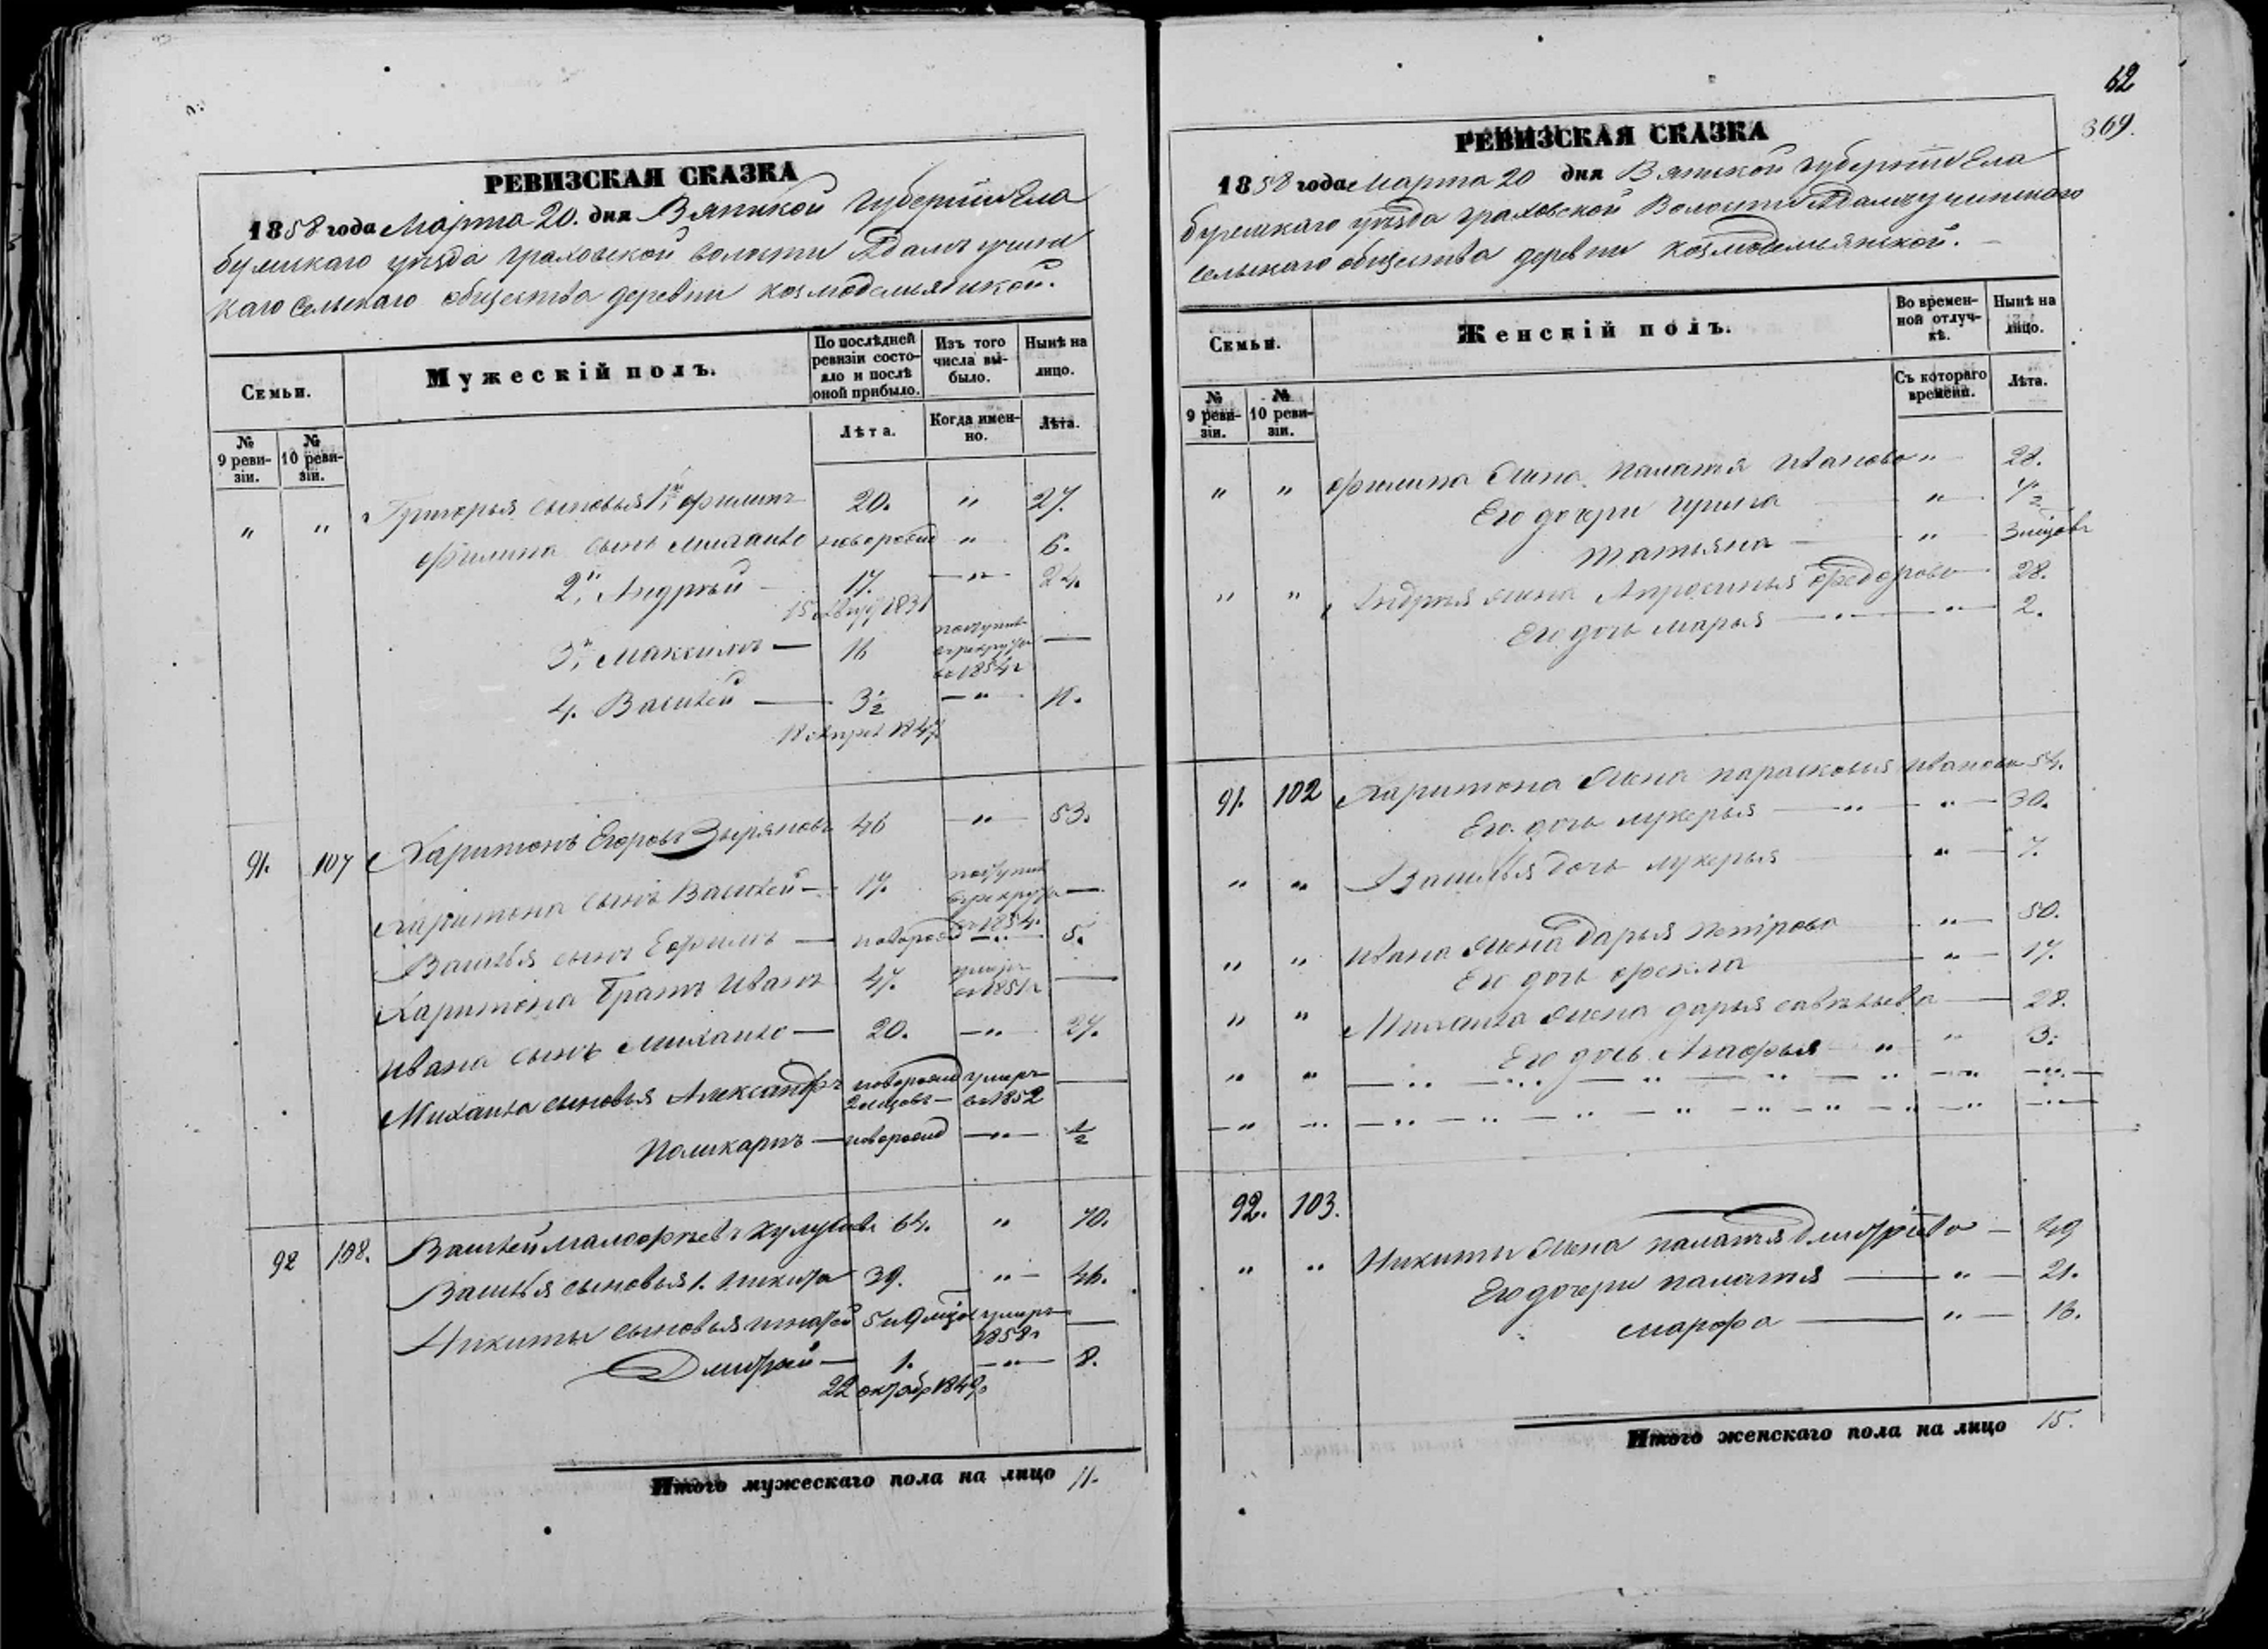 62
369.
РЕВИЗСКАЯ СКАЗКА
1858 года Марта 20. дня Вятской губернии Ела
бужскаго уѣзда Граховской волости
каго Сельскаго общества деревни Козмодемьянской.
Семьи.
Мужескій полъ.
По послѣдней ревизіи состояло и послѣ оной прибыло.
Изъ того числа выбыло.
Нынѣ на лицо.
№ 9 ревизіи.
№ 10 ревизіи.
Лѣта.
Когда именно.
Лѣта.
" " Григорья сыновья 1й Филипъ 20. " 27.
Филипа сынъ Михайло новорожд " 6.
2й Андрей 17. " 24.
3й Максимъ — 16 поступилъ в рекруты в 1854 г —
4. Василей — 3½ " 11.
91. 107 Харитонъ Егоровъ Зыряновъ 46 " 53.
Харитона сынъ Василей — 17. поступил в рекруты в 1854. —
Василья сынъ Ефимъ — новорожд " 5.
Харитона братъ Иванъ 47. умеръ в 1851 г —
Ивана сынъ Михайло — 20. " 27.
Михайла сыновья Александръ новорожд умеръ —
2 мцовъ — в 1852
Поликарпъ — новорожд " ½
92 108. Василей 64. " 70.
Василья сыновья 1. Никита 39. " 46.
Никиты сыновья 5 и 9 мцов умеръ —
Дмитрий — 1. " 8.
22 октябр 1849.
Итого мужескаго пола на лицо 11.
РЕВИЗСКАЯ СКАЗКА
1858 года Марта 20 дня Вятской губернии Ела
бужскаго уѣзда Граховской Волости
сельскаго общества деревни Козмодемьянской.
Семьи.
Женскій полъ.
Во временной отлучкѣ.
Нынѣ на лицо.
№ 9 ревизіи.
№ 10 ревизіи.
Съ котораго времени.
Лѣта.
" " Филипа жена Палагия Иванова " 28.
Его дочери Ирина "
Татьяна — " 3 мцовъ
" " Андрея жена Апросинья Федорова 28.
Его дочь Марья — " 2.
91. 102 Харитона жена Парасковья Иванова 54.
Его дочь Лукерья " " 30.
" " Василья дочь Лукерья " 7.
" " Ивана жена Дарья Петрова " 50.
Его дочь Фекла " 17.
" " Михаила жена Дарья Савельева — 28.
" " Его дочь Агафья " " 3.
92. 103.
" " Никиты жена Палагия Дмитриева — 49
Его дочери Палагия — " 21.
Марфа — " 16.
Итого женскаго пола на лицо 15.